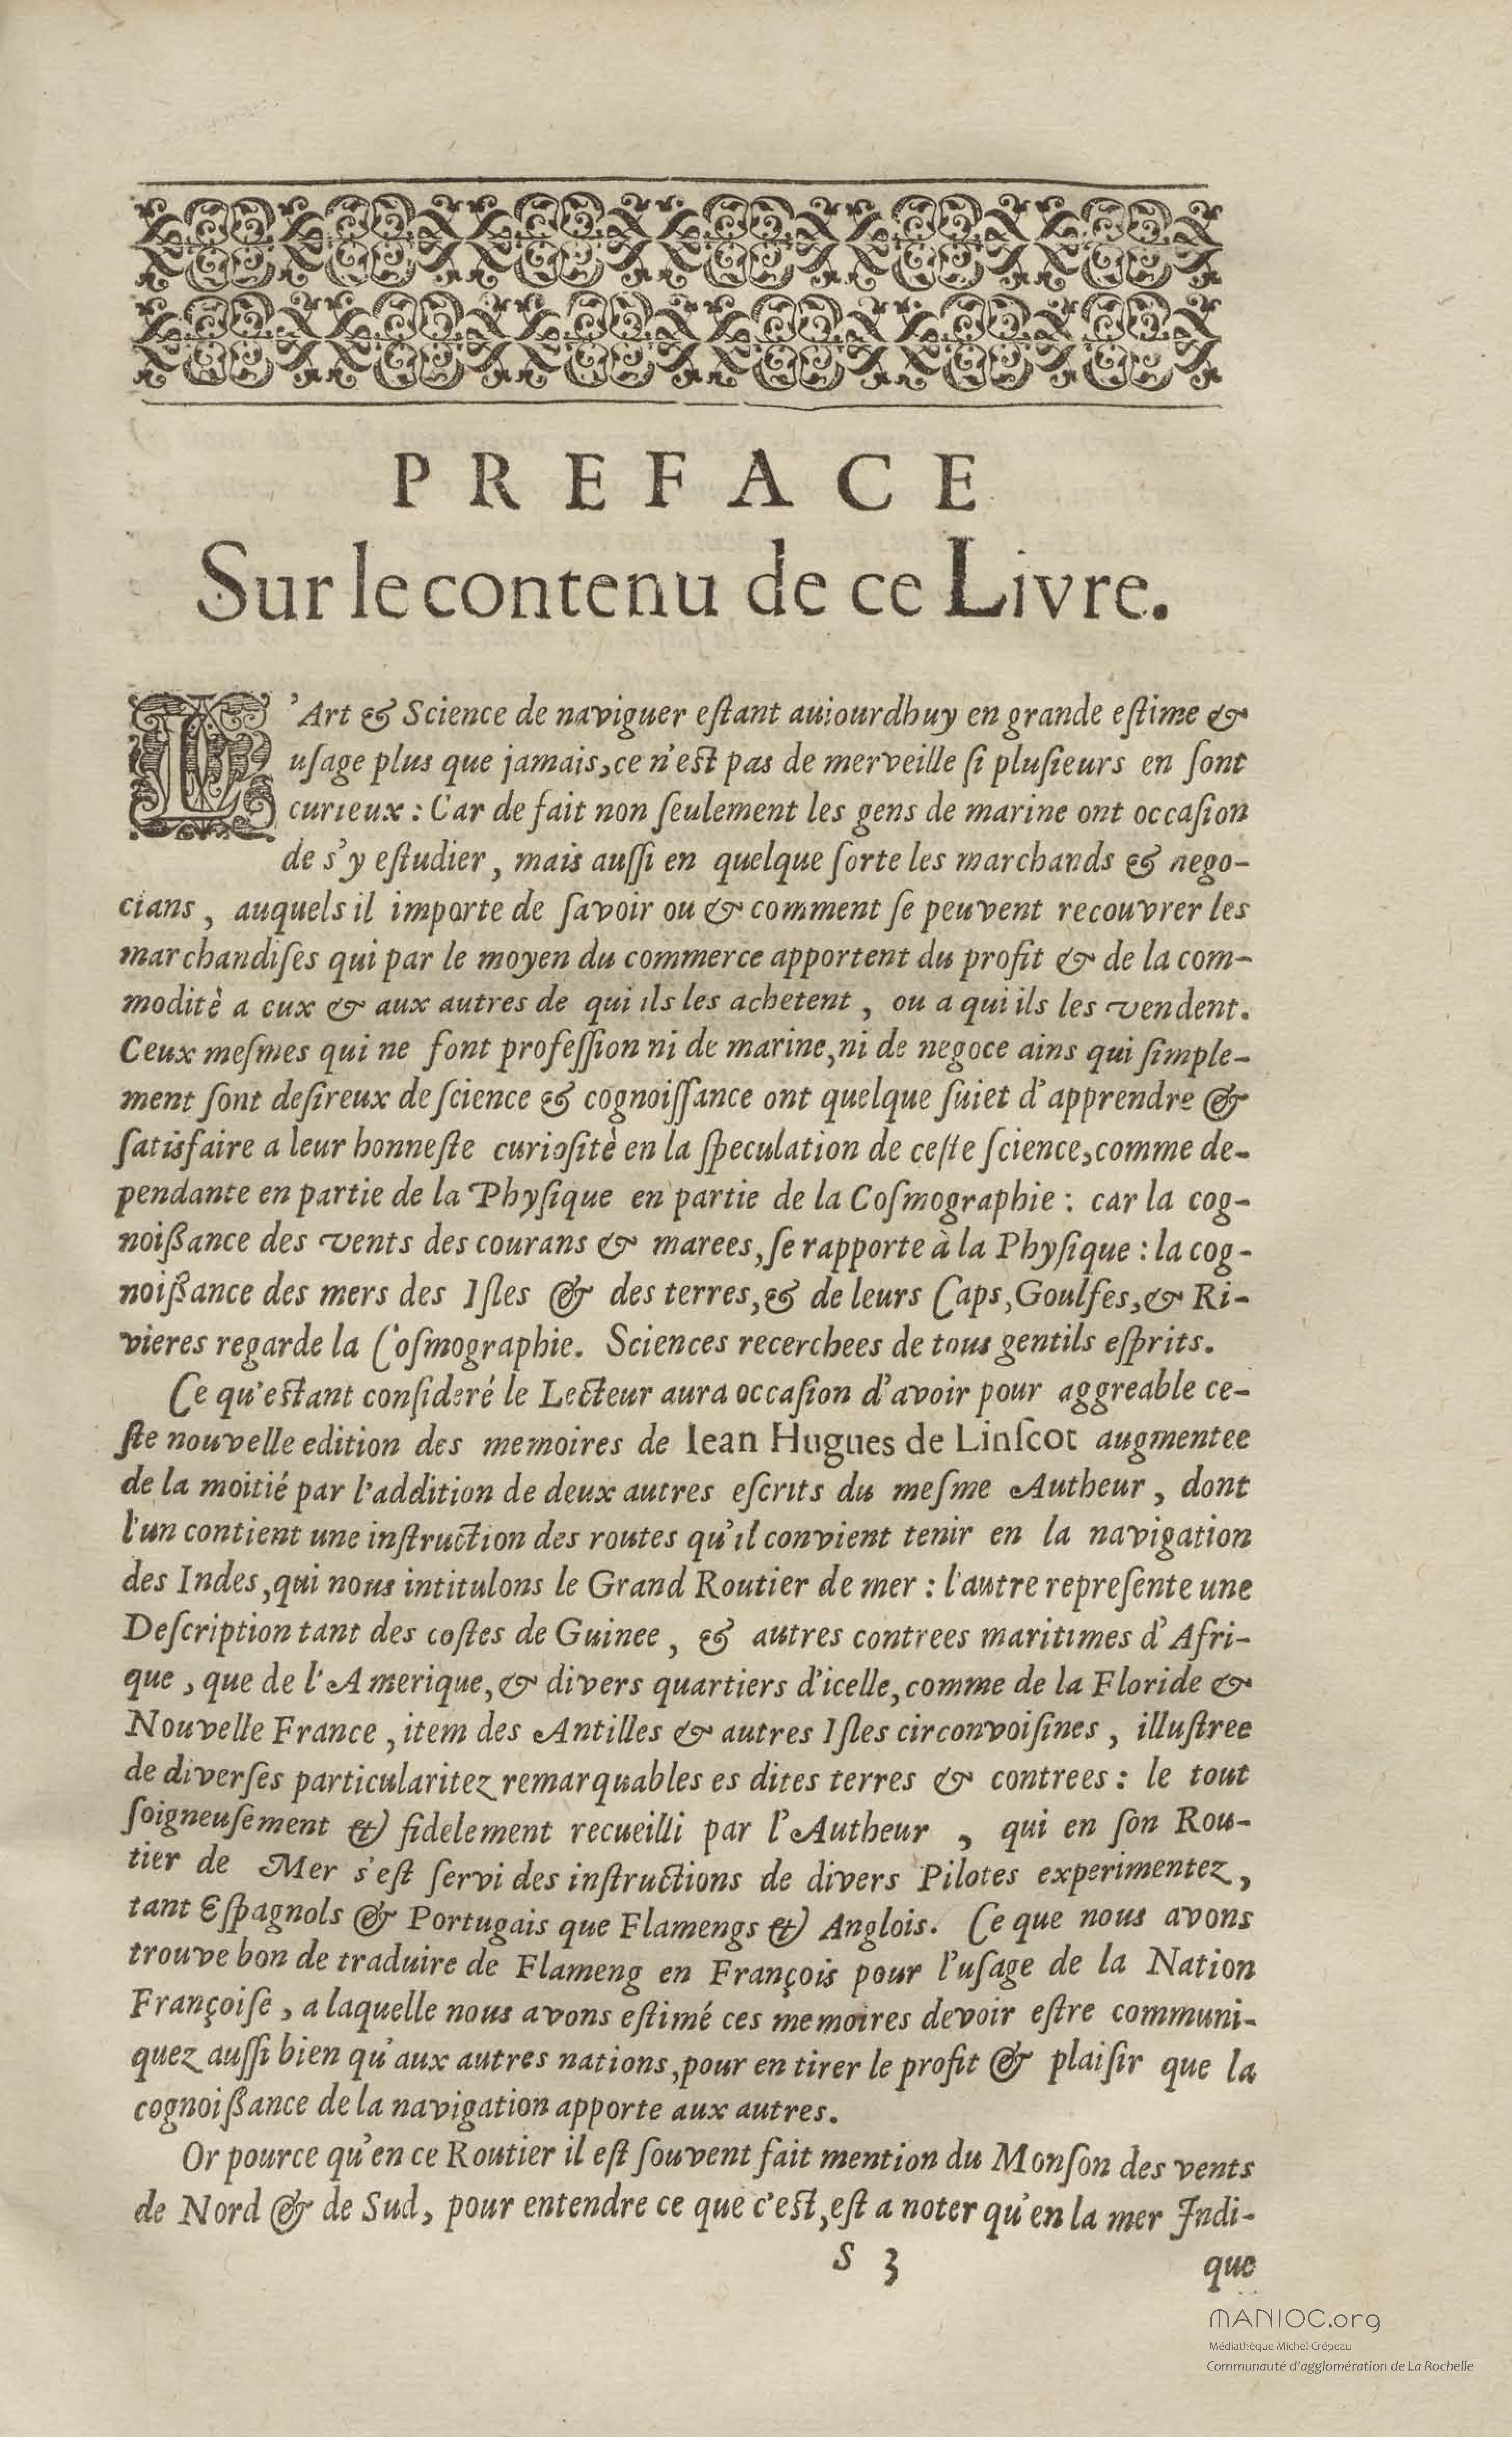 PREFACE
Sur le contenu de ce Livre.
L'Art & Science de naviguer eſtant auiourdhuy en grande eſtime &
uſage plus que jamais, ce n'est pas de merveille ſi pluſieurs en ſont
curieux : Car de fait non ſeulement les gens de marine ont occaſion
de s'y eſtudier, mais auſſi en quelque ſorte les marchands & nego-
cians, auquels il importe de ſavoir ou & comment ſe peuvent recouvrer les
marchandiſes qui par le moyen du commerce apportent du profit & de la com-
moditè a eux & aux autres de qui ils les achetent, ou a qui ils les vendent.
Ceux meſmes qui ne font profeſſion ni de marine, ni de negoce ains qui ſimple-
ment ſont deſireux de ſcience & cognoiſſance ont quelque ſuiet d'apprendre &
ſatisfaire a leur honneſte curioſitè en la ſpeculation de ceſte ſcience, comme de-
pendante en partie de la Phyſique en partie de la Coſmographie : car la cog-
noiſsance des vents des courans & marees, ſe rapporte à la Phyſique : la cog-
noiſsance des mers des Iſles & des terres, & de leurs Caps, Goulfes, & Ri-
vieres regarde la Coſmographie. Sciences recerchees de tous gentils eſprits.
Ce qu'estant conſideré le Lecteur aura occaſion d'avoir pour aggreable ce-
ſte nouvelle edition des memoires de Iean Hugues de Linſcot augmentee
de la moitié par l'addition de deux autres eſcrits du meſme Autheur, dont
l'un contient une inſtruction des routes qu'il convient tenir en la navigation
des Indes, qui nous intitulons le Grand Routier de mer : l'autre repreſente une
Deſcription tant des coſtes de Guinee, & autres contrees maritimes d'Afri-
que, que de l'Amerique, & divers quartiers d'icelle, comme de la Floride &
Nouvelle France, item des Antilles & autres Iſles circonvoiſines, illuſtree
de diverſes particularitez remarquables es dites terres & contrees : le tout
ſoigneuſement & fidelement recueilli par l'Autheur, qui en ſon Rou-
tier de Mer s'eſt ſervi des inſtructions de divers Pilotes experimentez,
tant Eſpagnols & Portugais que Flamengs & Anglois. Ce que nous avons
trouve bon de traduire de Flameng en François pour l'uſage de la Nation
Françoiſe, a laquelle nous avons eſtimé ces memoires devoir eſtre communi-
quez auſſi bien qu'aux autres nations, pour en tirer le profit & plaiſir que la
cognoiſsance de la navigation apporte aux autres.
Or pource qu'en ce Routier il eſt ſouvent fait mention du Monſon des vents
de Nord & de Sud, pour entendre ce que c'est, eſt a noter qu'en la mer Indi-
S 3
que
MANIOC.org
Médiathèque Michel-Crépeau
Communauté d'agglomération de La Rochelle